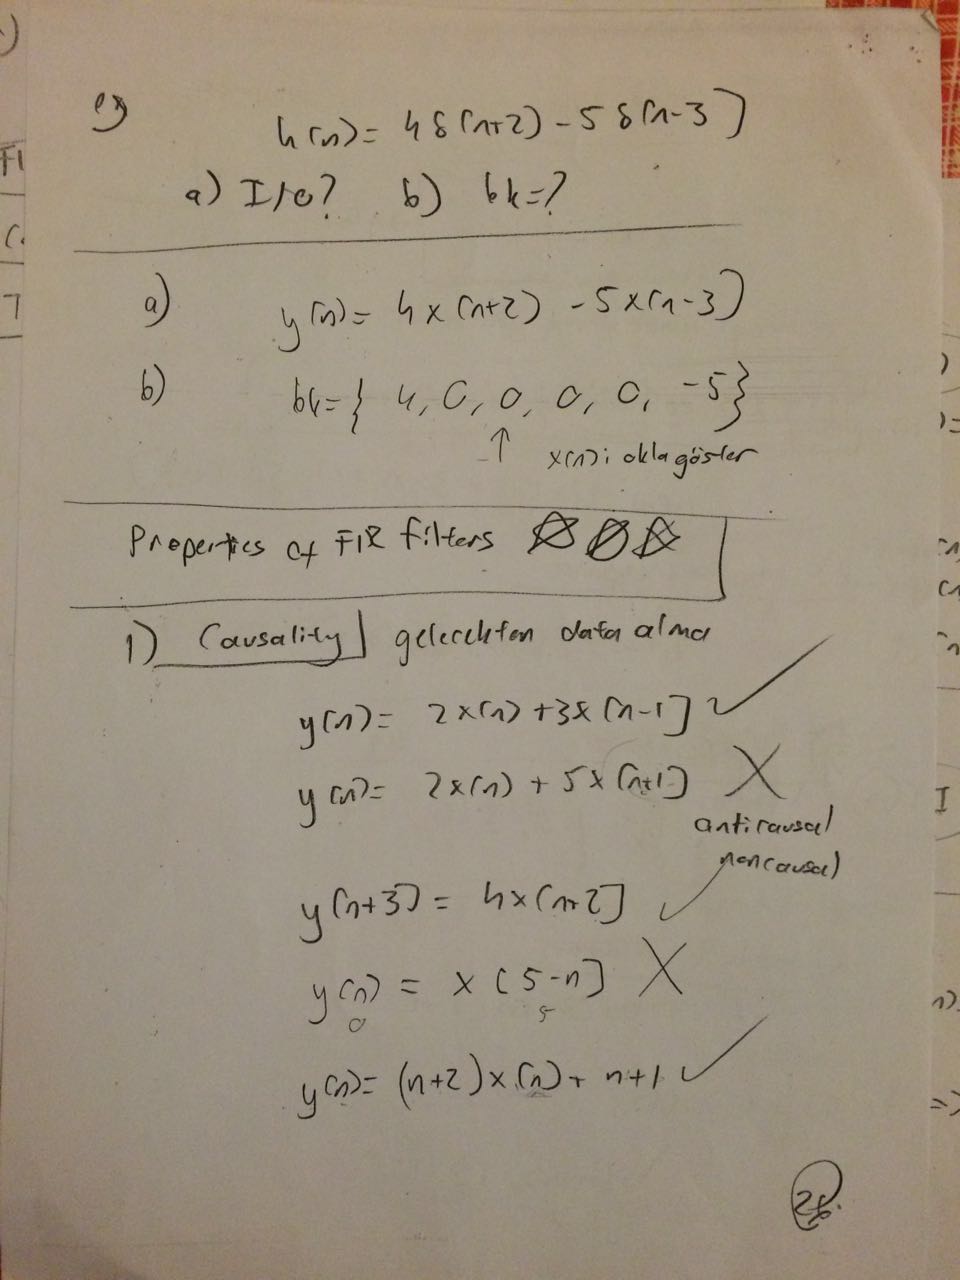 ex)
h[n] = 4δ[n+2] - 5δ[n-3]
a) I/O? b) bk=?
a) y[n] = 4x[n+2] - 5x[n-3]
b) bk = { 4, 0, 0, 0, 0, -5}
↑ x[n]i okla göster
Properties of FIR filters
1) Causality gelecekten data alma
y[n] = 2x[n] + 3x[n-1] ✓
y[n] = 2x[n] + 5x[n+1] X
anticausal
noncausal
y[n+3] = 4x[n+2] ✓
y[n] = x[5-n] X
0 5
y[n] = (n+2)x[n] + n+1 ✓